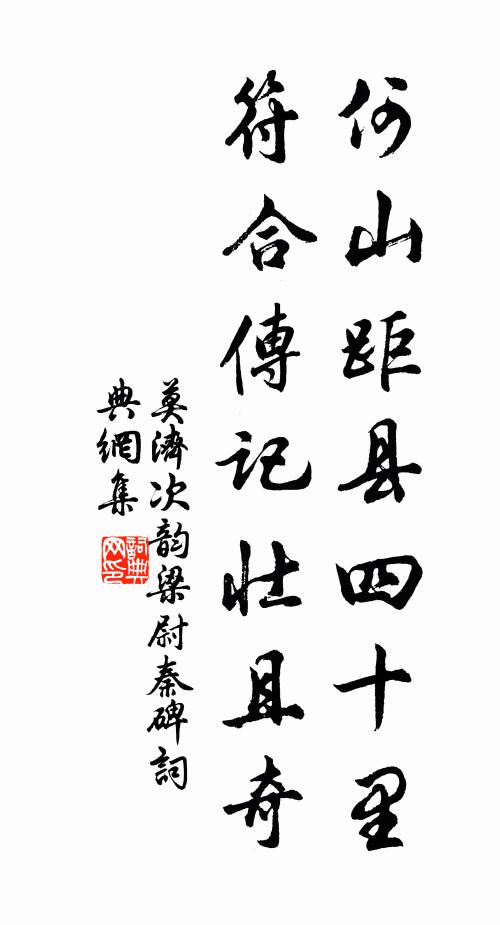 何山距县四十里
符合傳记壮且奇
莫濟次韵梁尉秦碑詞
典網集
詞典网印